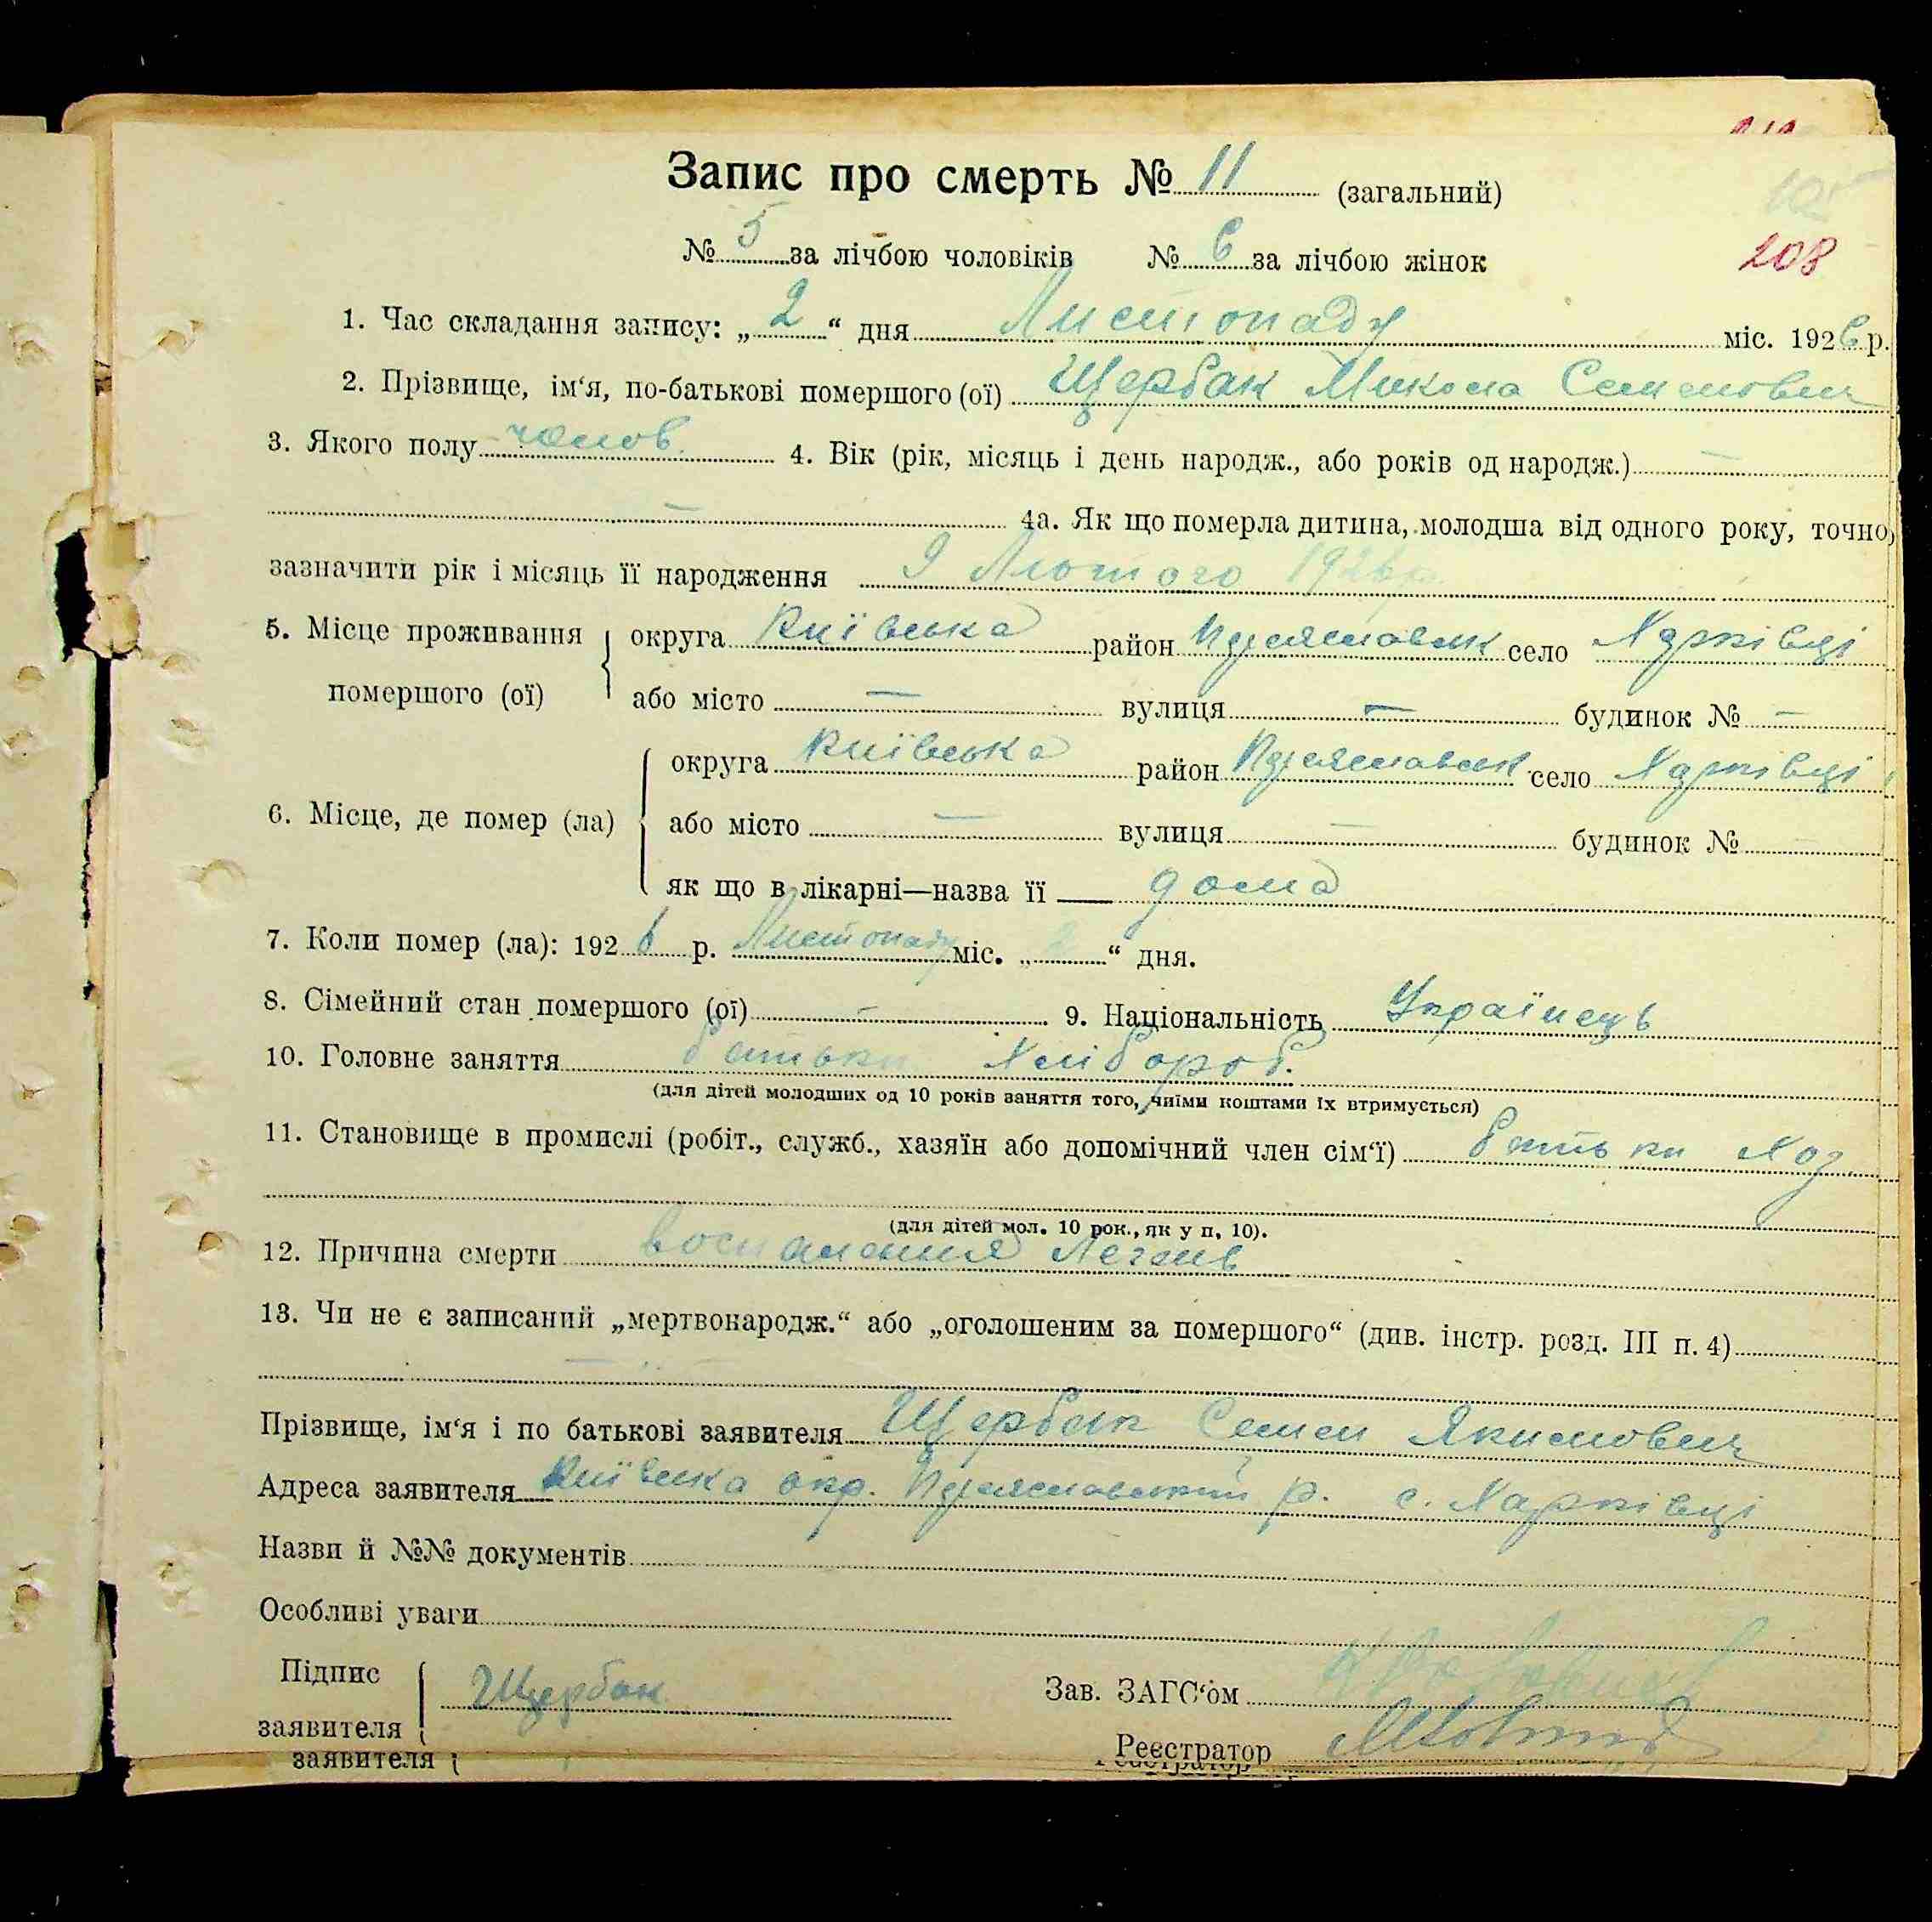 Запис про смерть № 11 (загальний)
№ 5 за лічбою чоловіків № 6 за лічбою жінок
208
1. Час складання запису: „ 2 “ дня Листопаду міс. 1926 р.
2. Прізвище, ім‘я, по-батькові помершого (ої) Щербак Микола Семенович
3. Якого полу чолов. 4. Вік (рік, місяць і день народж., або років од народж.) —
— 4а. Як що померла дитина, молодша від одного року, точно,
зазначити рік і місяць її народження 9 Лютого 1926 р.
5. Місце проживання помершого (ої) округа Київська район Переяславськ село Харківці
або місто — вулиця — будинок № —
6. Місце, де помер (ла) округа Київська район Переяславськ село Харківці
або місто — вулиця — будинок № —
як що в лікарні—назва її дома
7. Коли помер (ла): 1926 р. Листопаду міс. „ 2 “ дня.
8. Сімейний стан помершого (ої) — 9. Національність Українець
10. Головне заняття батьки Хлібороб.
(для дітей молодших од 10 років заняття того, чиїми коштами їх втримується)
11. Становище в промислі (робіт., служб., хазяїн або допомічний член сім‘ї) батьки Хоз.
(для дітей мол. 10 рок., як у п. 10).
12. Причина смерти воспаления Легень
13. Чи не є записаний „мертвонародж.“ або „оголошеним за помершого“ (див. інстр. розд. III п. 4)
Прізвище, ім‘я і по батькові заявителя Щербак Семен Якимович
Адреса заявителя Київська окр. Переяславський р. с. Харківці
Назви й №№ документів
Особливі уваги
Підпис заявителя Щербак Зав. ЗАГС‘ом
Реєстратор
заявителя
Реєстратор